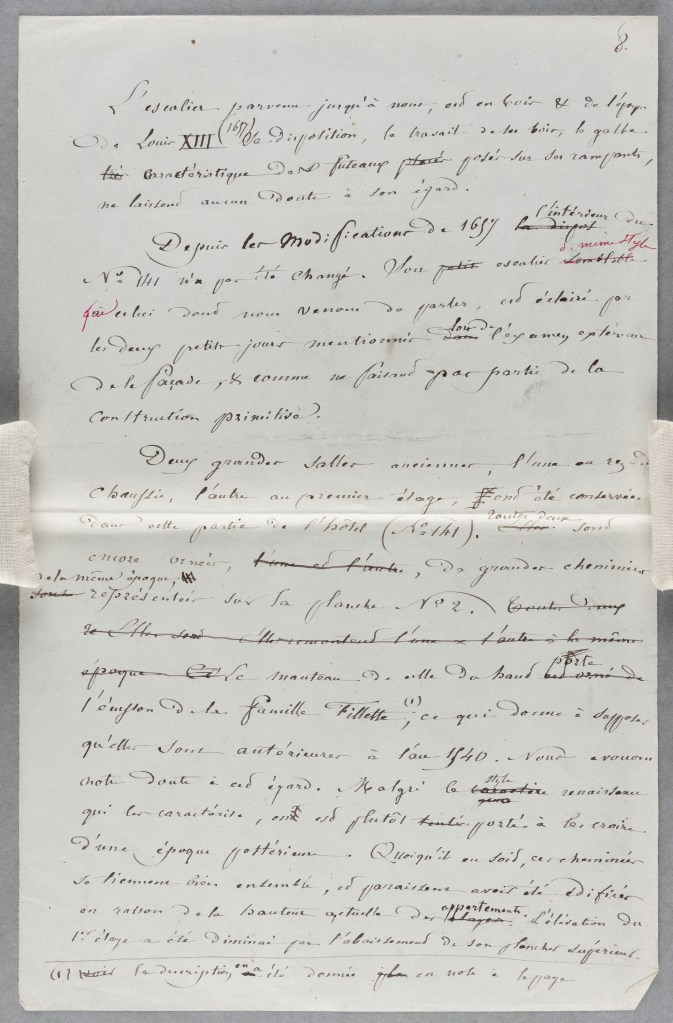 8.
L'escalier parvenu jusqu'à nous, est en bois & de l'époque
de Louis XIII (1657) Sa disposition, le travail de ses bois, le galbe
très caractéristique des futeaux placés posés sur ses rampants,
ne laissent aucun doute à son égard.
Depuis les Modifications de 1657 la dispos l'intérieur du
No 141 n'a pas été changé. Son petit escalier semblable d. même style
que celui dont nous venons de parler, est éclairé par
les deux petits jours mentionnés dans lors de l'examen extérieur
de la façade, & comme ne faisant pas partie de la
construction primitive.
Deux grandes salles anciennes, l'une au rez-de
chaussée, l'autre au premier étage, ont été conservées
dans cette partie de l'hôtel (No 141). Elles toutes deux sont
encore ornées, l'une et l'autre, de grandes cheminées
de la même époque,
sont représentées sur la planche No 2. Toutes deux
elles remontent l'une & l'autre à la même
époque Le manteau de celle du haut est orné de porte
l'écusson de la famille Fillette (1), ce qui donne à supposer
qu'elles sont antérieures à l'an 1540. Nous avouons
notre doute à cet égard. Malgré le caractère style renaissance
qui les caractérise, on est plutôt tenté porté à les croire
d'une époque postérieure. Quoiqu'il en soit, ces cheminées
se tiennent bien ensemble, et paraissent avoir été édifiées
en raison de la hauteur actuelle des étages appartements. L'élévation du
1er étage a été diminué par l'abaissement de son plancher supérieur.
(1) voir la description en a été donnée en note à la page